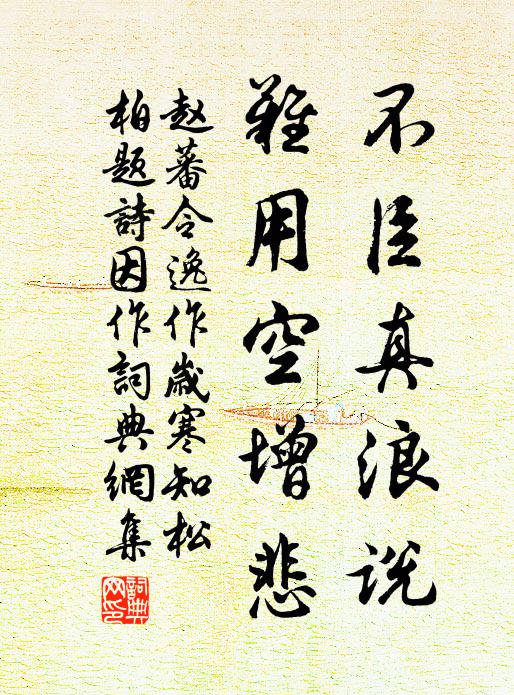 不臣真浪说
难用空增悲
赵蕃令逸作岁寒知松
柏题詩因作詞典網集
詞典网印